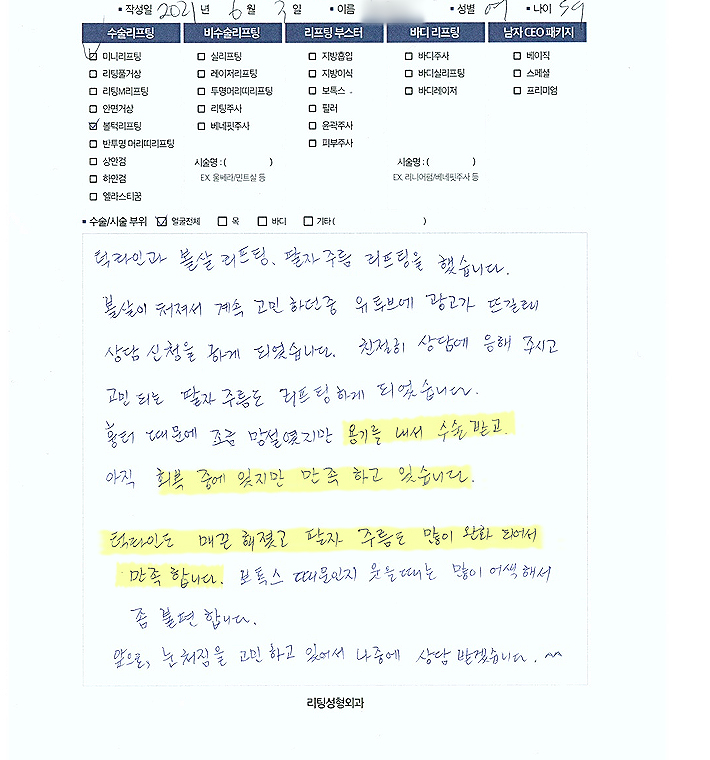 ▪ 작성일 2021 년 6 월 3 일 ▪ 이름 ▪ 성별 여 ▪ 나이 59
수술리프팅 비수술리프팅 리프팅 부스터 바디 리프팅 남자 CEO 패키지
☑ 미니리프팅 □ 실리프팅 □ 지방흡입 □ 바디주사 □ 베이직
□ 리팅풀거상 □ 레이저리프팅 □ 지방이식 □ 바디실리프팅 □ 스페셜
□ 리팅M리프팅 □ 투명머리띠리프팅 □ 보톡스 □ 바디레이저 □ 프리미엄
□ 안면거상 □ 리팅주사 □ 필러
☑ 볼턱리프팅 □ 베네핏주사 □ 윤곽주사
□ 반투명 머리띠리프팅 □ 피부주사
□ 상안검 시술명 : ( ) 시술명 : ( )
□ 하안검 EX. 울쎄라/민트실 등 EX. 리니어펌/베네핏주사 등
□ 엘라스티꿈
▪ 수술/시술 부위 ☑ 얼굴전체 □ 목 □ 바디 □ 기타 ( )
턱라인과 볼살 리프팅, 팔자 주름 리프팅을 했습니다.
볼살이 쳐져서 계속 고민 하던중 유튜브에 광고가 뜨길래
상담 신청을 하게 되었습니다. 친절히 상담에 응해 주시고
고민 되는 팔자 주름도 리프팅 하게 되었습니다.
흉터 때문에 조금 망설였지만 용기를 내서 수술 받고.
아직 회복 중에 있지만 만족 하고 있습니다.
턱라인도 매끈 해졌고 팔자 주름도 많이 완화 되어서
만족 합니다. 보톡스 때문인지 웃을때는 많이 어색해서
좀 불편 합니다.
앞으로, 눈 쳐짐을 고민 하고 있어서 나중에 상담 받겠습니다. ^^
리팅성형외과